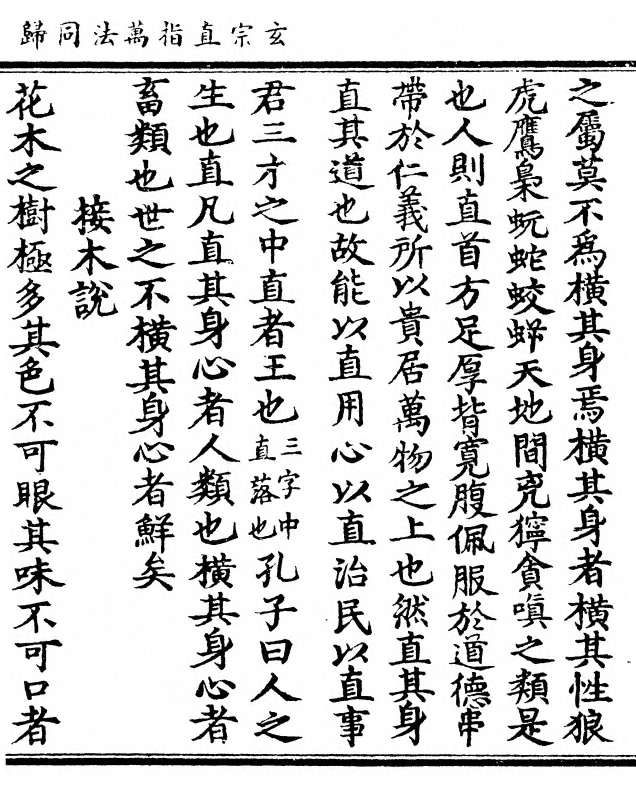 玄宗直指萬法同歸
之屬莫不爲橫其身焉橫其身者橫其性狼
虎鷹梟蚖蛇蛟蜉天地間兇獰貪嗔之類是
也人則直首方足厚背寬腹佩服於道德串
帶於仁義所以貴居萬物之上也然直其身
直其道也故能以直用心以直治民以直事
君三才之中直者王也三字中直落也孔子曰人之
生也直凡直其身心者人類也橫其身心者
畜類也世之不橫其身心者鮮矣
接木說
花木之樹極多其色不可眼其味不可口者